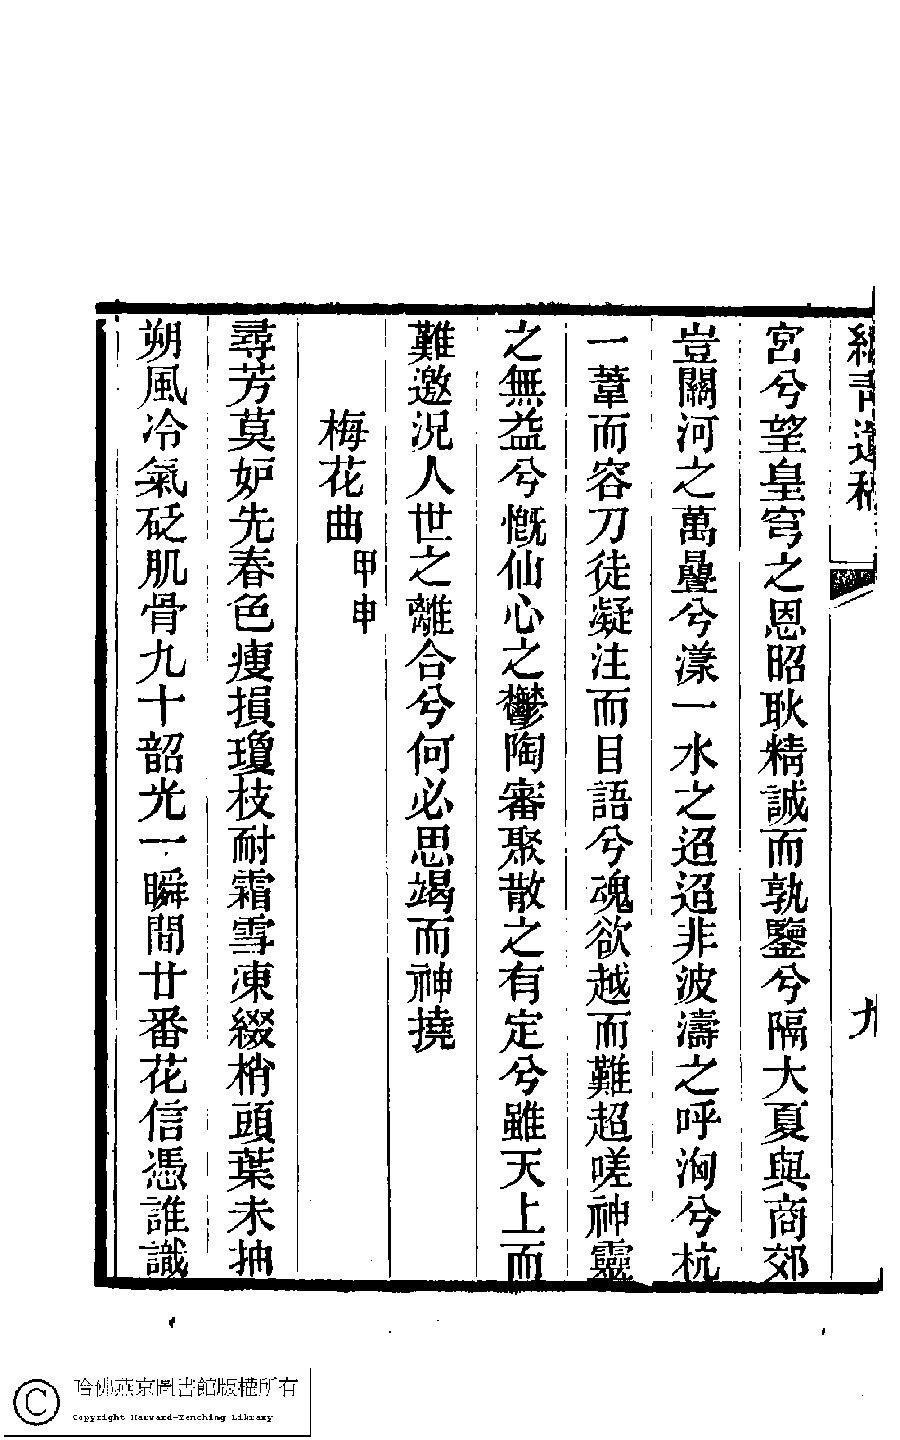 繡青遺稿
九
宮兮望皇穹之恩昭耿精誠而孰鑒兮隔大夏與商郊
豈關河之萬疊兮漾一水之迢迢非波濤之呼洶兮杭
一葦而容刀徒凝注而目語兮魂欲越而難超嗟神靈
之無益兮慨仙心之鬱陶審聚散之有定兮雖天上而
難邀況人世之離合兮何必思竭而神撓
梅花曲甲申
尋芳莫妒先春色瘦損瓊枝耐霜雪凍綴梢頭葉未抽
朔風冷氣砭肌骨九十韶光一瞬間廿番花信憑誰識
哈佛燕京圖書館版權所有
Copyright Harvard-Yenching Library